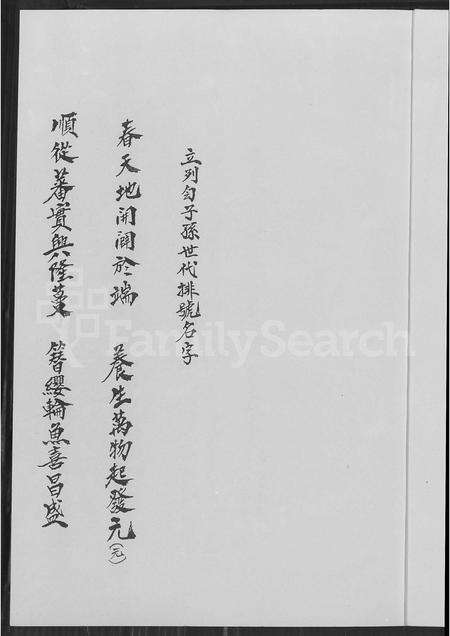 立列勻子孫世代排號名字
春天地開闢於端 養生萬物起發元(元)
順從蕃實興隆蔓 簪纓輪魚喜昌盛
FamilySearch